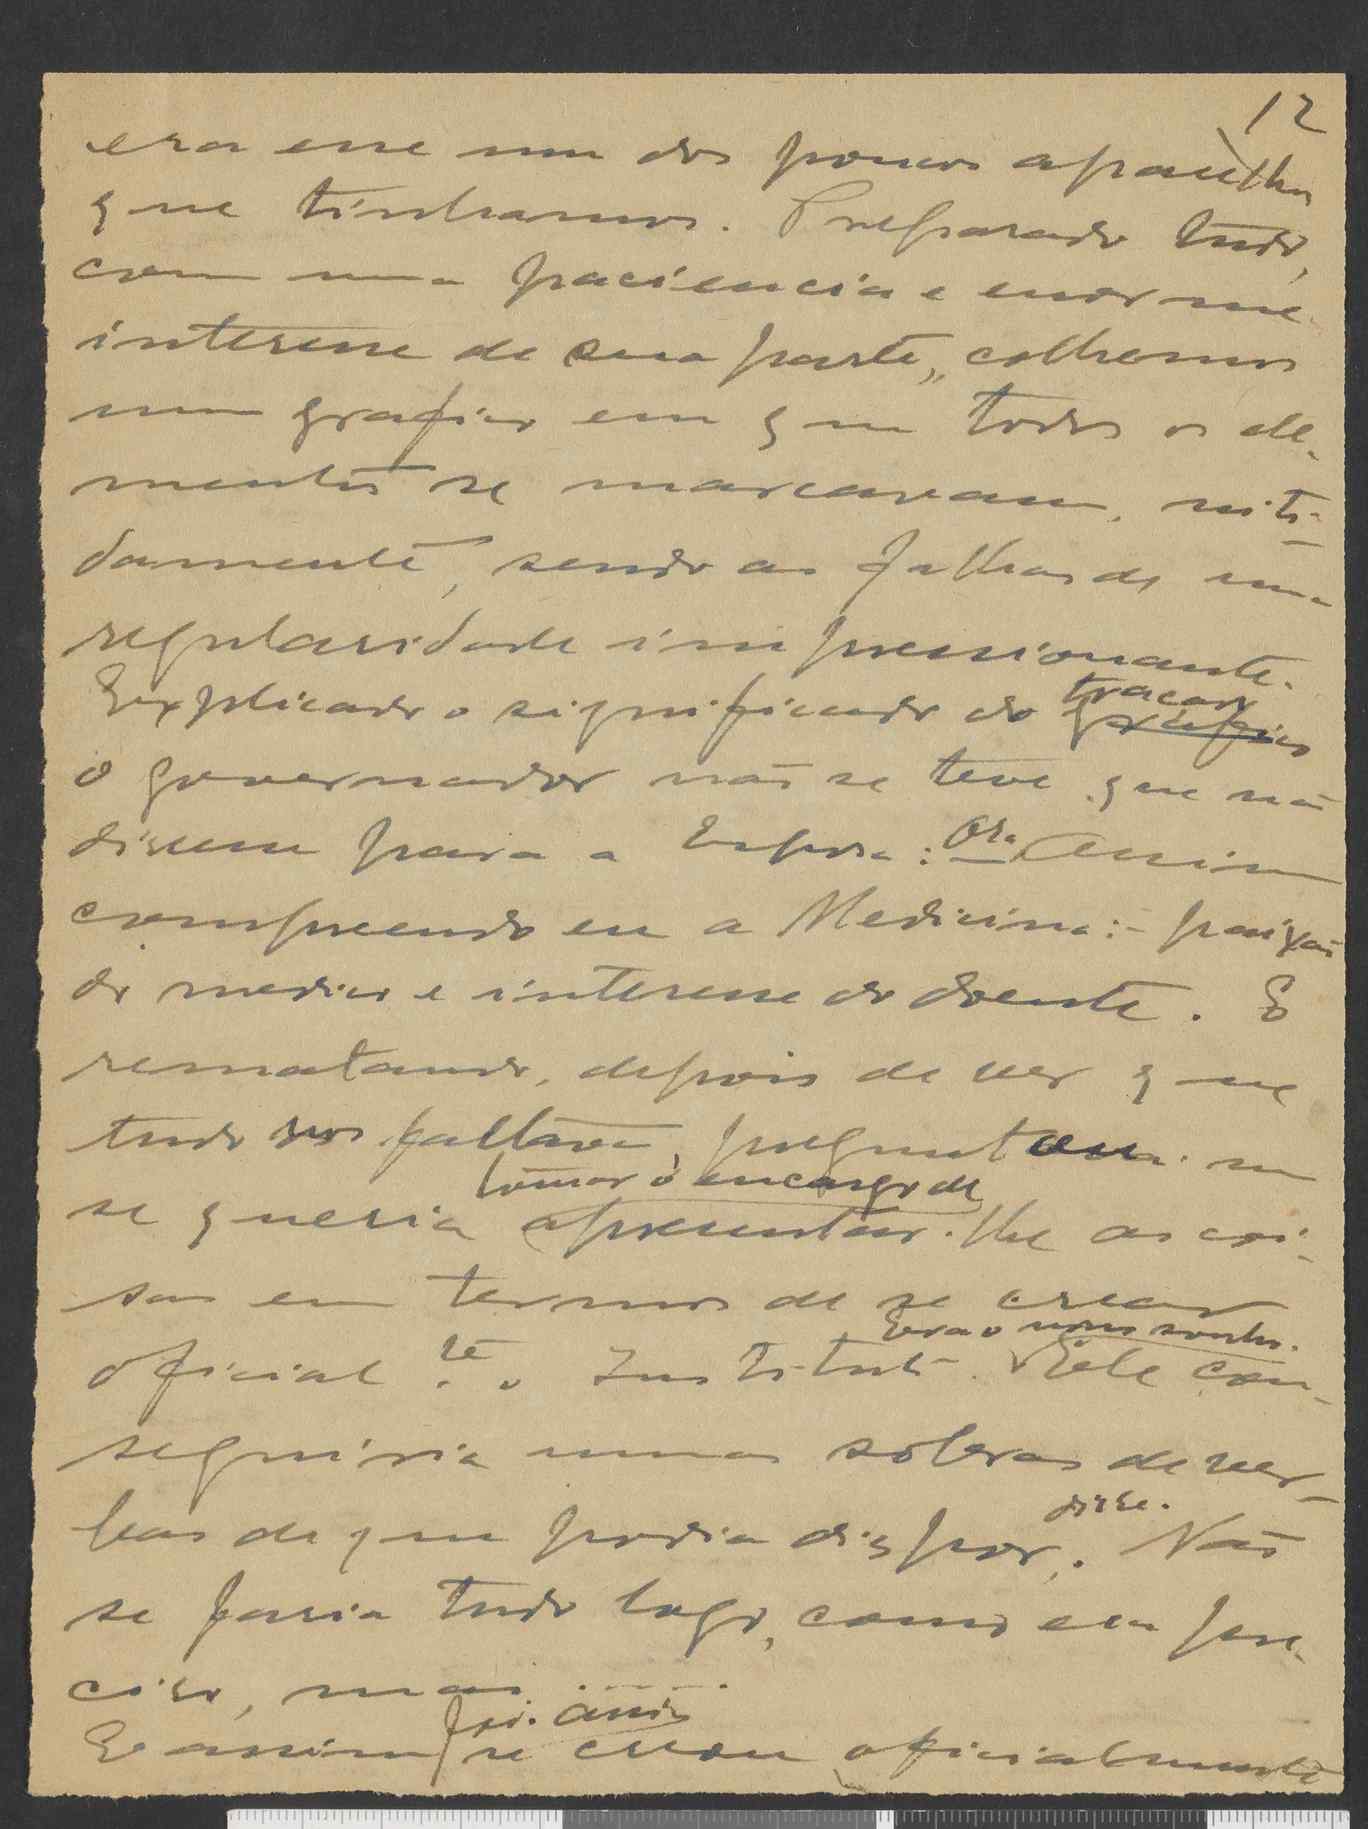 12
era esse um dos poucos aparelhos
que tinhamos. Preparado tudo,
com uma paciencia e enorme
interesse de sua parte, colhemos
um grafico em que todos os ele-
mentos se marcavam, niti-
damente, sendo as falhas de uma
regularidade impressionante.
Explicado o significado do grafico traçado
o governador não se teve que não
dissesse para a Esposa: Ora Assim
compreendo eu a Medicina: - paixão
do medico e interesse do doente. E
rematando, depois de ver que
tudo nos faltava, preguntou-me
tomar o encargo de
se queria apresentar-lhe as coi-
sas em termos de se crear
Era o nosso sonho.
oficial.te o Instituto. Ele con-
seguiria umas sobras de ver-
disse.
bas de que podia dispor. Não
se faria tudo logo, como era pre-
ciso, mas .....
foi. assim
E assim se creou oficialmente